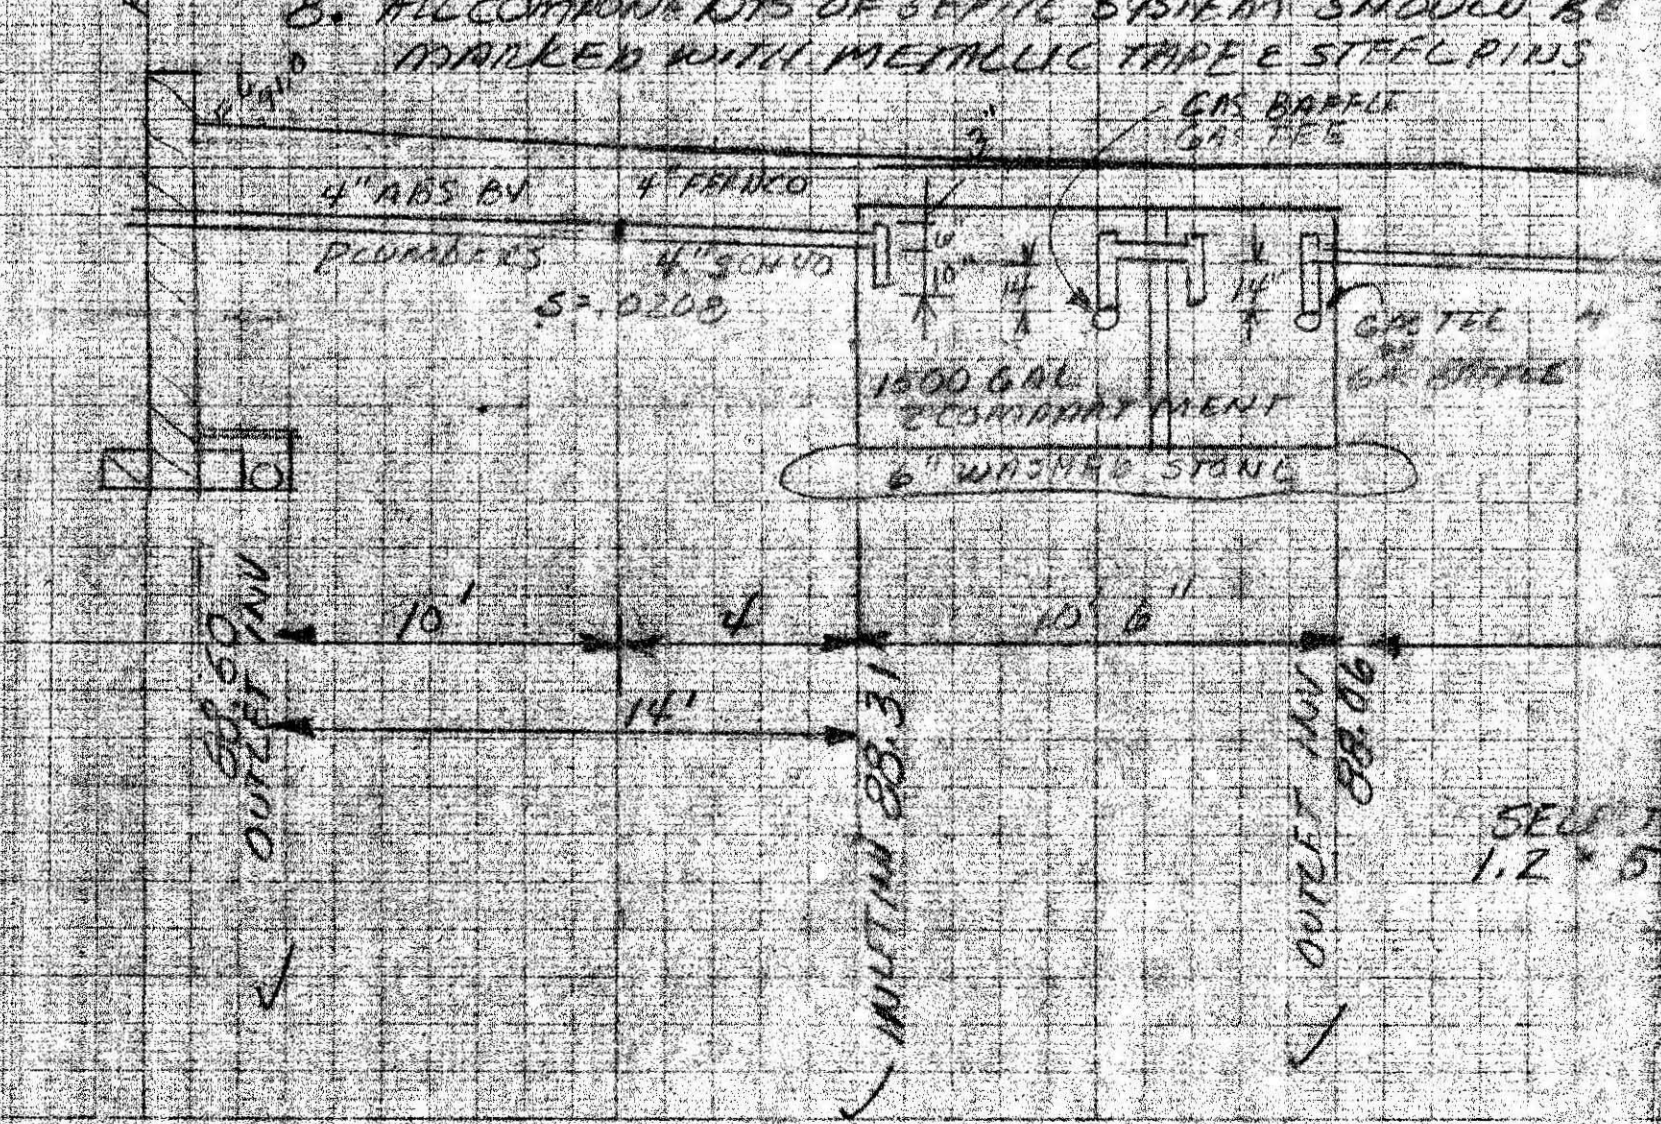 8. ALL COMPONENTS OF SEPTIC SYSTEM SHOULD BE
MARKED WITH METALLIC TAPE & STEEL PINS
GAS BAFFLE
GAS TEE
3"
4" ABS BY
PLUMBERS
4" FERNCO
4" SCH 40
S=.0208
6"
10"
14"
14"
GAS TEE
GAS BAFFLE
1500 GAL
2 COMPARTMENT
6" WASHED STONE
10'
4
10' 6"
14'
88.60
OUTLET INV
INLET INV 88.31
OUTLET INV
88.06
1.2